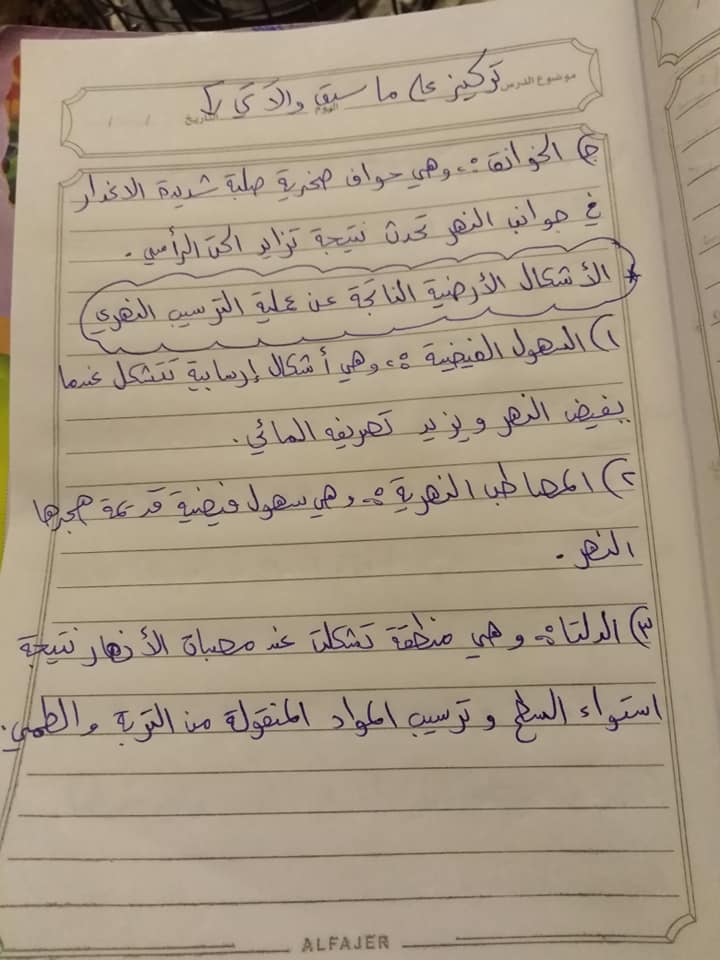 موضوع الدرس تركيز على ما سبق والآتي
اليوم التاريخ / /
ج) الخوانق :- وهي حواف صخرية صلبة شديدة الانحدار
في جوانب النهر تحدث نتيجة تزايد الحت الرأسي .
* الأشكال الأرضية الناتجة عن عملية الترسيب النهري
١) السهول الفيضية :- وهي أشكال إرسابية تتشكل عندما
يفيض النهر ويزيد تصريفه المائي .
٢) المصاطب النهرية :- وهي سهول فيضية قديمة هجرها
النهر .
٣) الدلتا :- وهي منطقة تشكلت عند مصبات الأنهار نتيجة
استواء السطح وترسيب المواد المنقولة من التربة والطمي .
ALFAJER